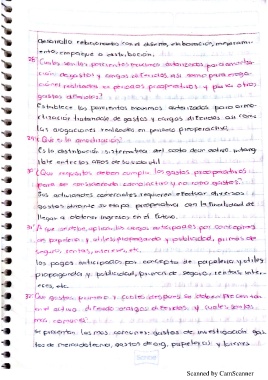 desarrollo relacionados con el diseño, elaboración, mejoramiento
ento, empaque o distribución.
28 ¿Cuáles son los porcientos máximos autorizados para amortiza
ción de gastos y cargos diferidos, así como para eroga
ciones realizadas en periodos preoperativos y para otros
gastos diferidos?
Establece los porcientos máximos autorizados para amo
rtización tratándose de gastos y cargos diferidos, así como
las erogaciones realizadas en periodo preoperativo.
29 ¿Qué es la amortización?
Es la distribución sistemática del costo de un activo intang
ible entre los años de su vida útil
30 ¿Qué requisitos deben cumplir los gastos preoperativos
para ser considerados como activo y no como gastos?
Las actividades comerciales regularmente efectúan diversos
gastos durante su etapa preoperativa con la finalidad de
llegar a obtener ingresos en el futuro.
31 ¿A que se debe aplicar los cargos anticipados por conceptos
en papelería y útiles, propaganda y publicidad, primas de
seguros, rentas, intereses, etc.
los pagos anticipados por concepto de papelería y útiles
propaganda y publicidad, primas de seguro, rentas, inte
reses, etc.
32 Que gastos primero y cuales después se deben presentar
en el activo diferido cargos diferidos y cuales son los
mas comunes?
Se presentan los mas comunes: gastos de investigación, gas
tos de mercadotecnia, gastos de org. papelería y bienes
Scanned by CamScanner